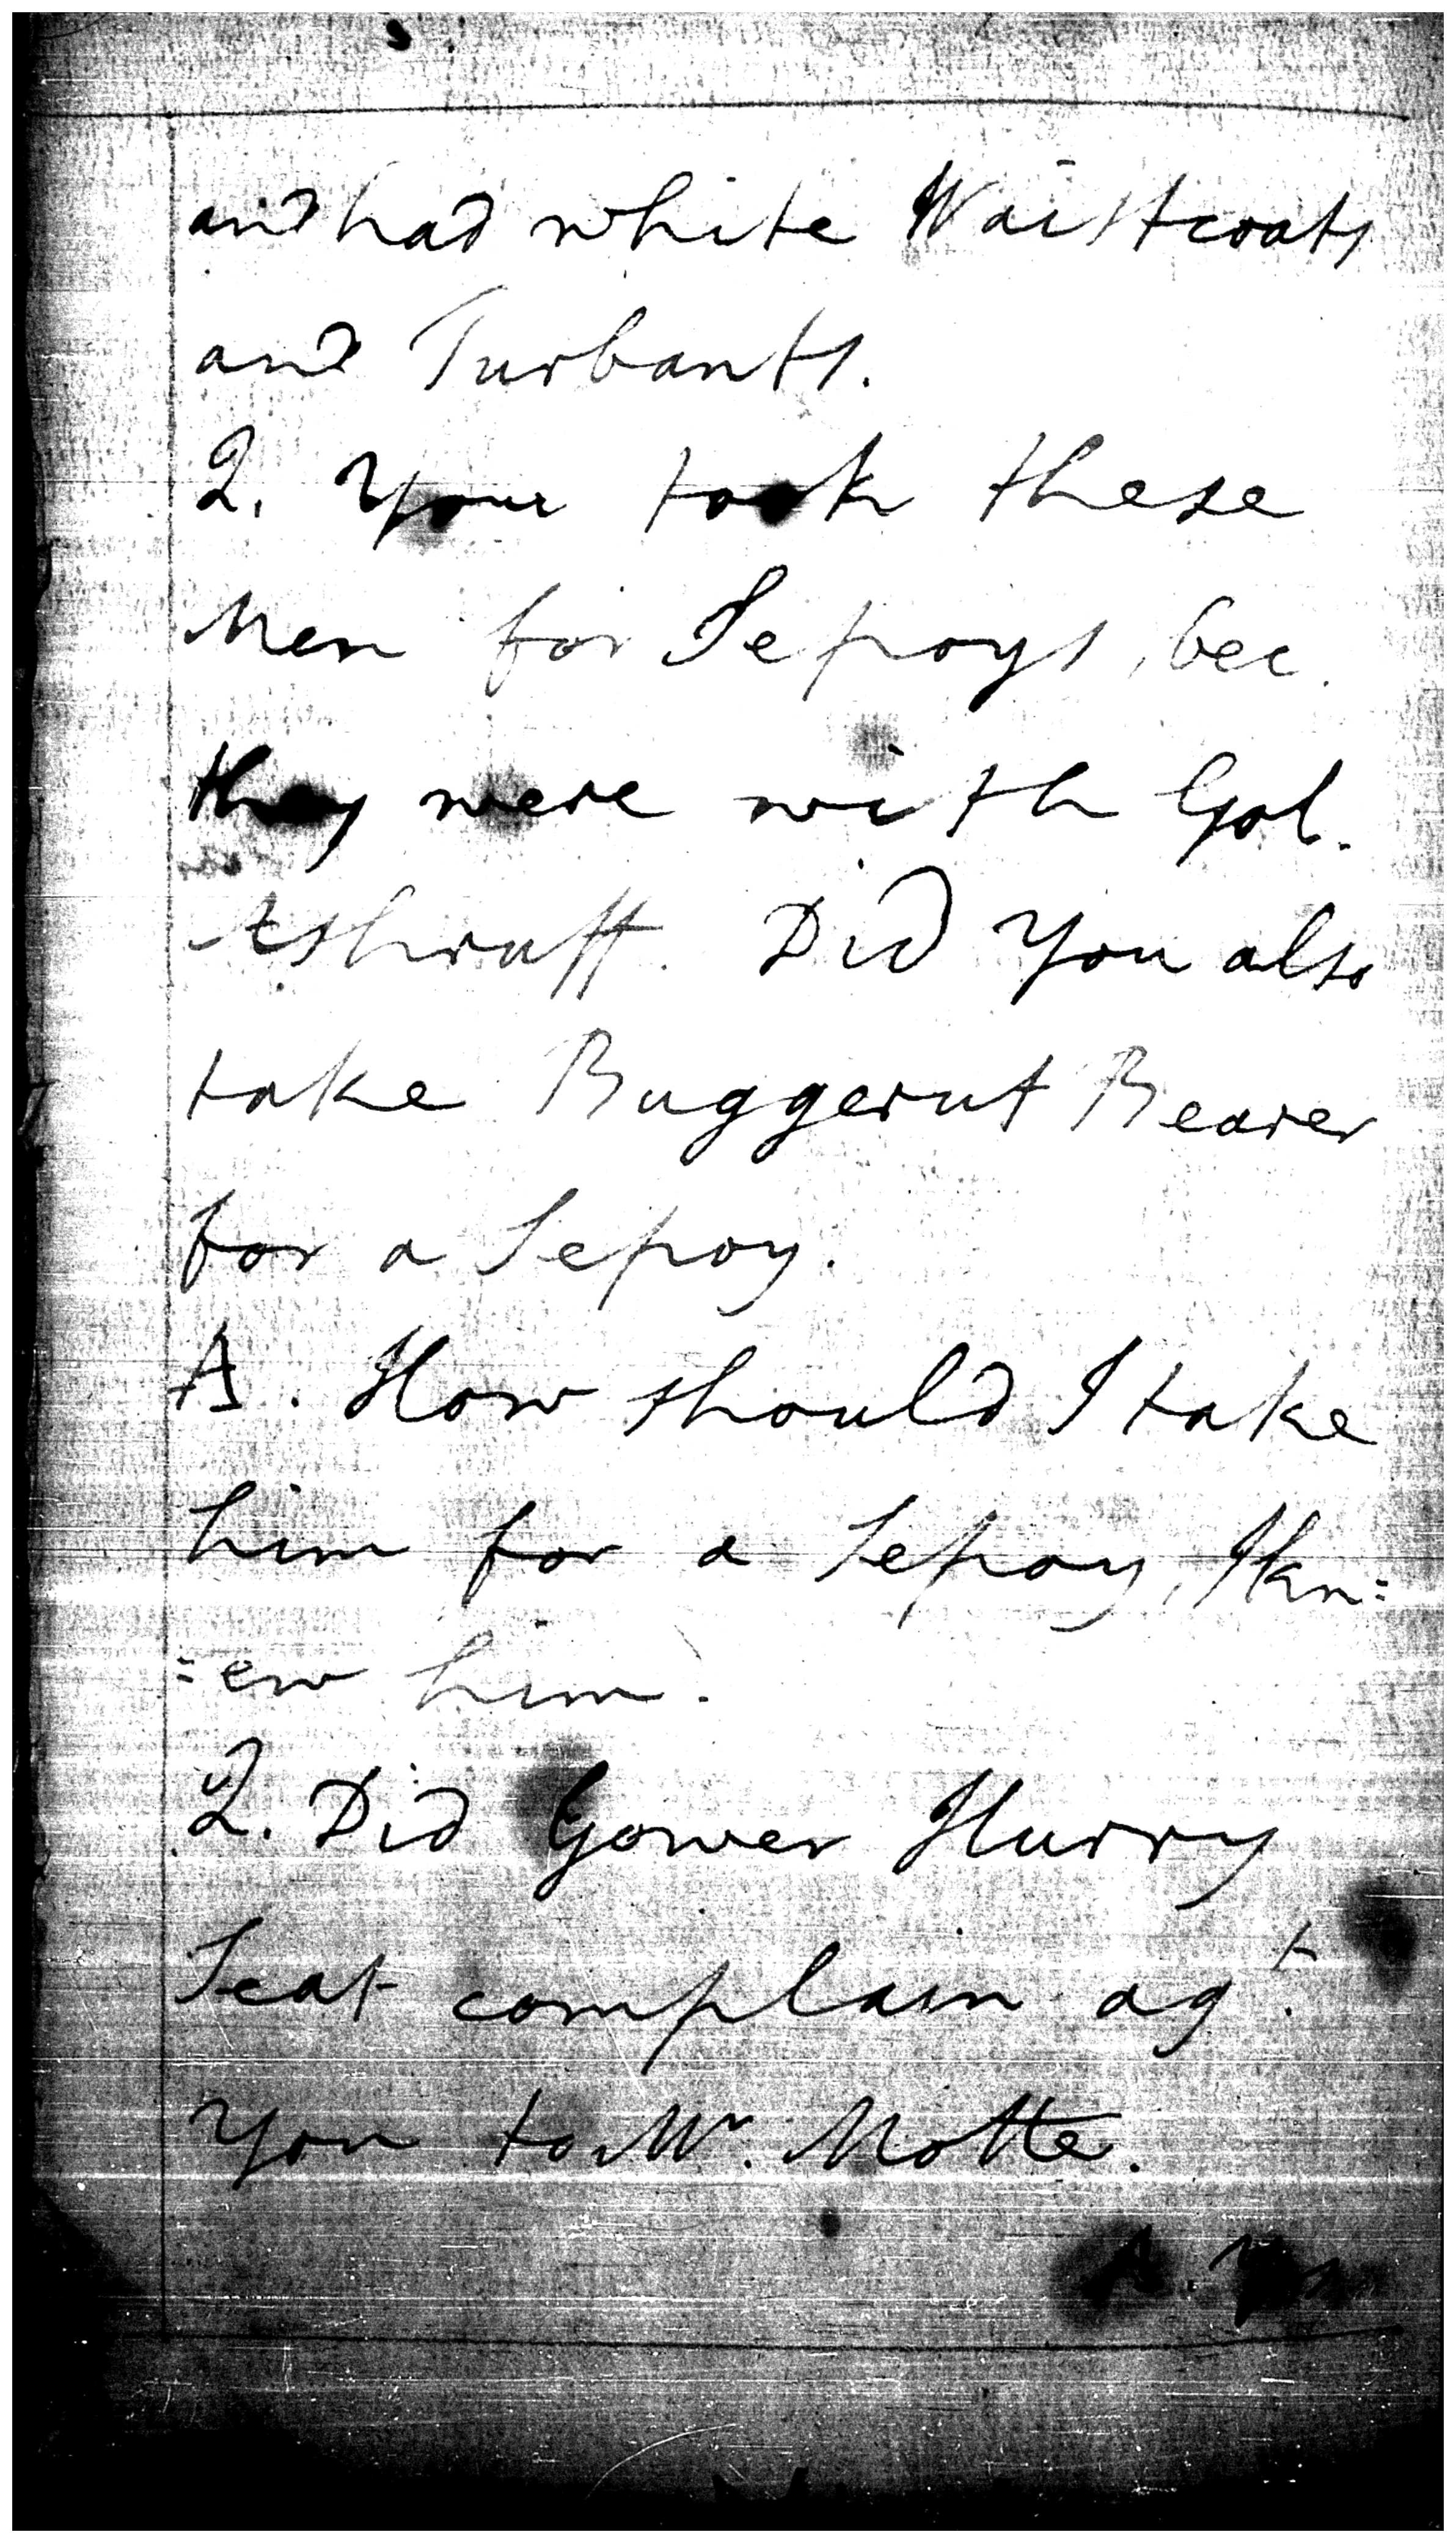 and had white Waistcoats
and Turbants.
Q. You took these
Men for Sepoys, bec.
they were with Gol.
Ashruff. Did You also
take Buggerut Bearer
for a Sepoy.
A. How should I take
him for a Sepoy, I kn=
=ew him.
Q. Did Gower Hurry
Seat complain agt.
You to Mr. Motte.
A. Yes